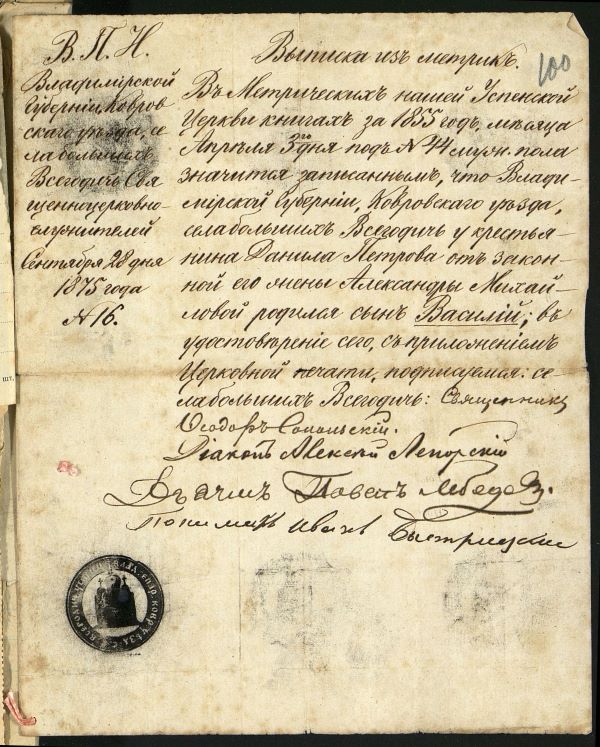 В. П. Н.
Владимірской
Губерніи, Ковров
скаго уѣзда, се
ла большихъ
Всегодичь Свя
щенноцерковно-
служителей
Сентября 28 дня
1875 года
№ 16.
Выписка изъ метрикъ.
100
Въ Метрическихъ нашей Успенской
Церкви книгахъ за 1855 годъ, мѣсяца
Апрѣля 3го дня подъ № 44 муж. пола
значится записаннымъ, что Влади-
мірской Губерніи, Ковровскаго уѣзда,
села большихъ Всегодичь у крестья-
нина Данила Петрова отъ закон-
ной его жены Александры Михай-
ловой родился сынъ Василій; въ
удостовѣреніе сего, съ приложеніемъ
Церковной печати, подписуемся: се-
ла большихъ Всегодичь: Священникъ
Ѳеодоръ
Діаконъ Алексій Лепорскій
Дьячекъ Павелъ Лебедев
Иванъ Быстрицкій